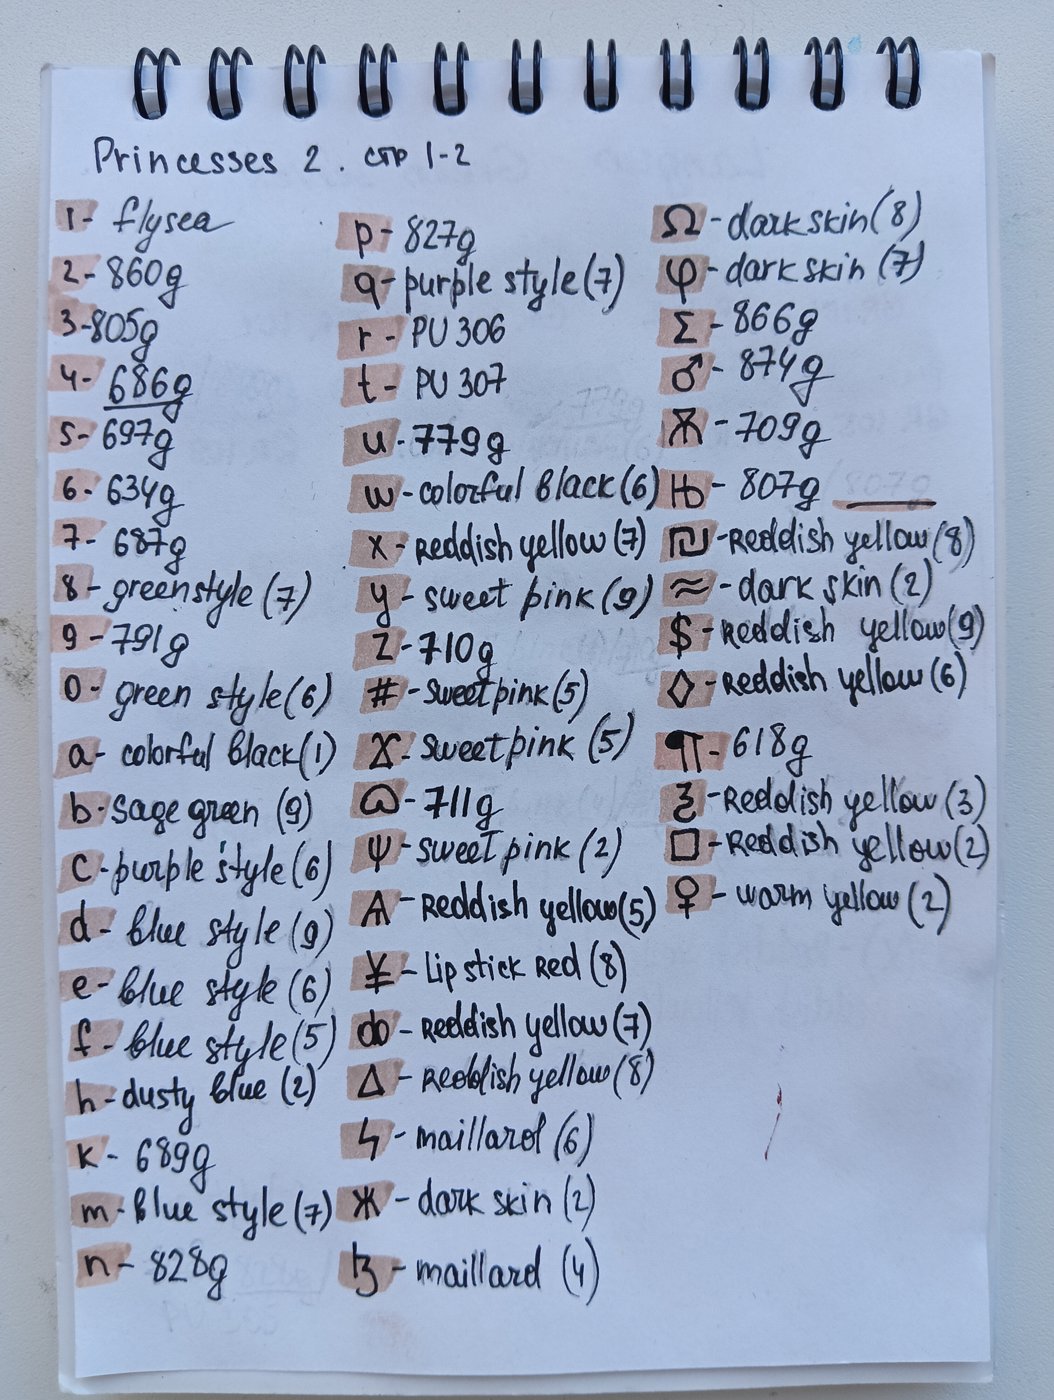 Princesses 2. стр 1-2
1- flysea
2- 860g
3- 805g
4- 686g
5- 697g
6- 634g
7- 687g
8- green style (7)
9- 791g
0- green style (6)
a- colorful black (1)
b- sage green (9)
c- purple style (6)
d- blue style (9)
e- blue style (6)
f- blue style (5)
h- dusty blue (2)
k- 689g
m- blue style (7)
n- 828g
p- 827g
q- purple style (7)
r- PU 306
t- PU 307
u- 779g
w- colorful black (6)
x- Reddish yellow (7)
y- sweet pink (9)
z- 710g
#- sweet pink (5)
X- sweet pink (5)
ϖ- 711g
ψ- sweet pink (2)
A- Reddish yellow (5)
¥- Lipstick Red (8)
ȸ- Reddish yellow (7)
Δ- Reddish yellow (8)
ϟ- maillard (6)
Ж- dark skin (2)
ꜩ- maillard (4)
Ω- dark skin (8)
φ- dark skin (7)
Σ- 866g
♂- 874g
Ѫ- 709g
Њ- 807g
₪- Reddish yellow (8)
≈- dark skin (2)
$- Reddish yellow (9)
◇- Reddish yellow (6)
¶- 618g
ξ- Reddish yellow (3)
□- Reddish yellow (2)
♀- warm yellow (2)